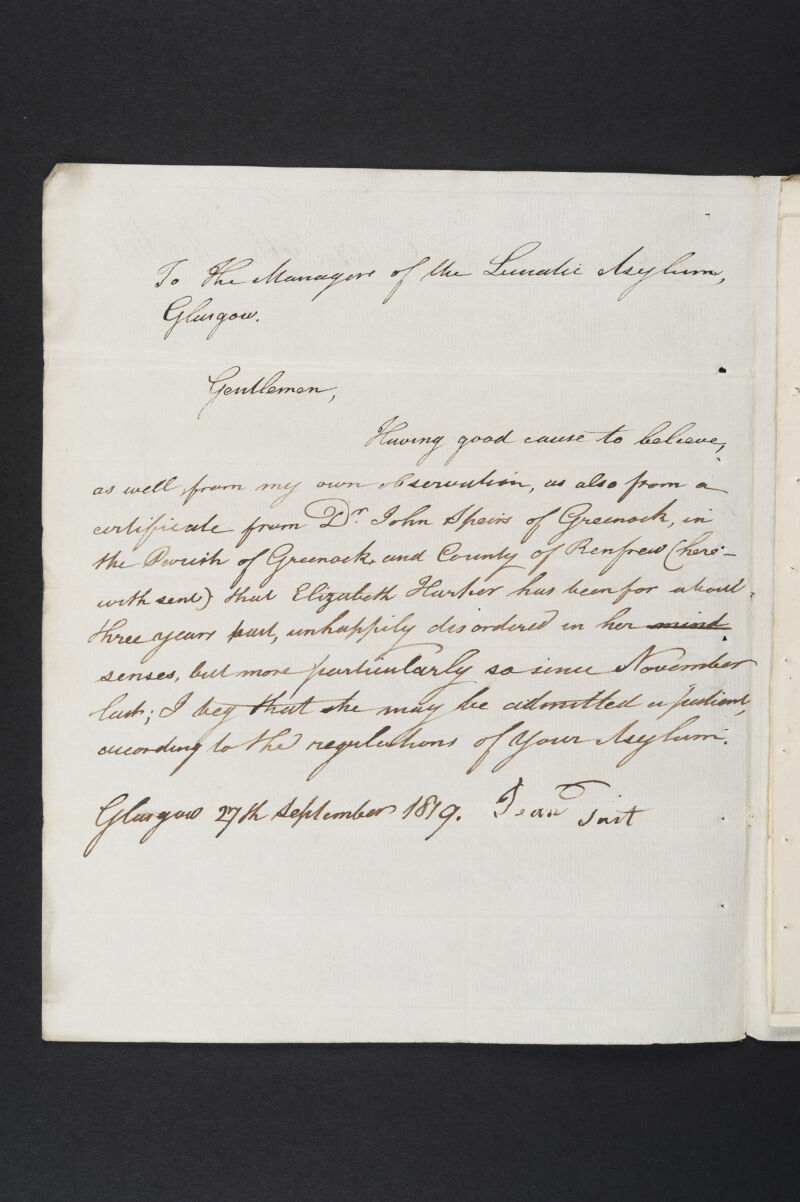 To the Managers of the Lunatic Asylum,
Glasgow.
Gentlemen,
Having good cause to believe,
as well, from my own observation, as also from a
certificate from Dr. John Speirs of Greenock, in
the Parish of Greenock, and County of Renfrew (here-
with sent) that Elizabeth Harker has been for about
three years past, unhappily disordered in her mind
senses, but more particularly so since November
last; I beg that she may be admitted a patient,
according to the regulations of your Asylum.
Glasgow 27th September 1819. Jean Tait